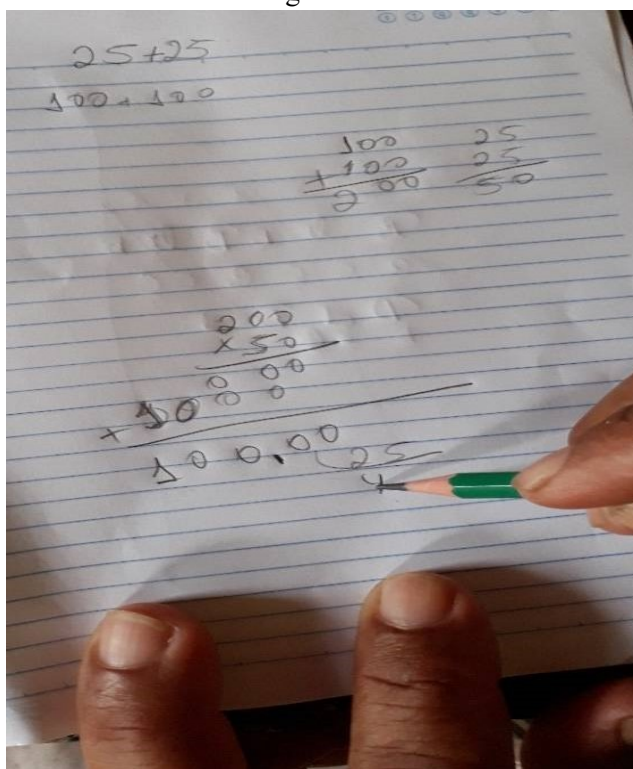 25+25
100+100
100
+100
200
25
25
50
200
x50
000
+1000
100.00
25
4